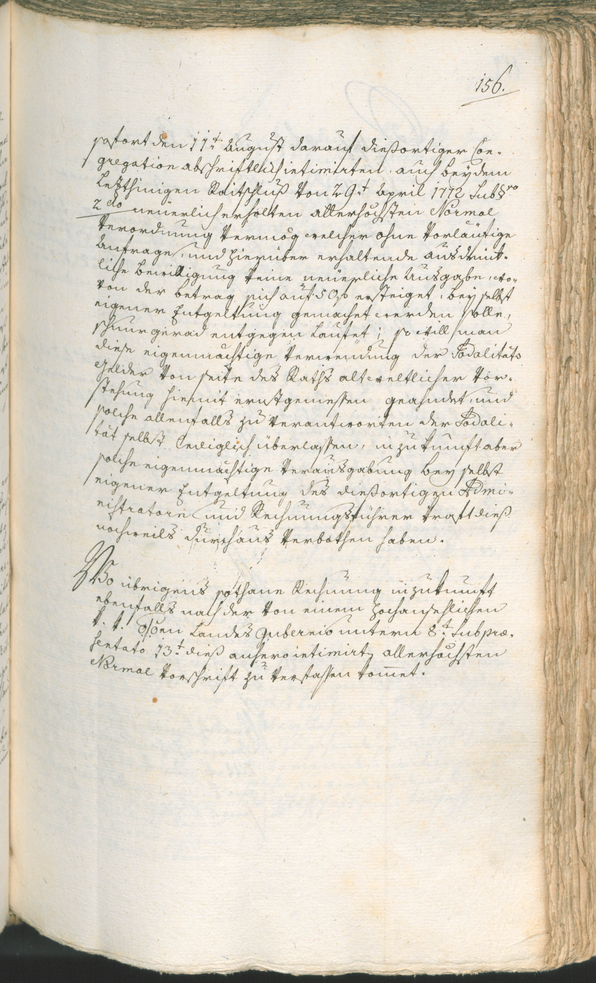 156.
sofort den 11t August darauf diesortiger Con-
gregation abschriftlich intimirten, auch bey dem
letzthinigen Raitschluß von 29t April 1772 sub §ro
2do neuerlich erholten allerhöchsten Normal
Verordnung vermög welcher ohne vorläufige
Anfrage, und hierüber erhaltende ausdrück-
liche Bewilligung keine neuerliche Ausgabe, wo-
von der Betrag sich auf 50 f ersteiget, bey selbst
eigener Entgeltung gemacht werden solle,
schnurgerad entgegen lautet; so will man
diese eigenmächtige Verwendung der Sodalitäts
Gelder von seite des Raths alt weltlicher Vor-
stehung hiermit ernstgemessen geahndet, und
solche allenfalls zu verantworten der Sodali-
tät selbst lediglich überlassen, in zukunft aber
solche eigenmächtige Verausgabung bey selbst
eigener Entgeltung des diesortigen Admi-
nistratorn und Rechnungsführer kraft dieß
nochweils durchaus verbothen haben.
Wo übrigens sothane Rechnung in zukunft
ebenfalls nach der von einem Hochansehlichen
k. k. O: Öen Landes Gubernio unterm 8t sub præ-
sentato 13t dieß anhero intimirt allerhöchsten
Normal Vorschrift zu verfassen kommet.